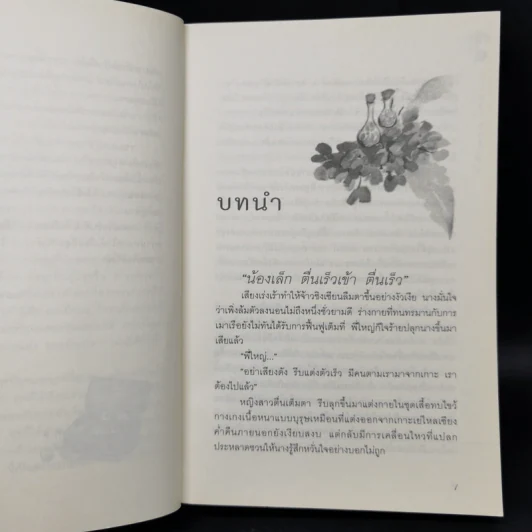 บทนำ
“น้องเล็ก ตื่นเร็วเข้า ตื่นเร็ว”
เสียงเร่งเร้าทำให้จ้าวชิงเซียนลืมตาขึ้นอย่างงัวเงีย นางมั่นใจ
ว่าเพิ่งล้มตัวลงนอนไม่ถึงหนึ่งชั่วยามดี ร่างกายที่ทนทรมานกับการ
เมาเรือยังไม่ทันได้รับการฟื้นฟูเต็มที่ พี่ใหญ่ก็ใจร้ายปลุกนางขึ้นมา
เสียแล้ว
“พี่ใหญ่...”
“อย่าเสียงดัง รีบแต่งตัวเร็ว มีคนตามเรามาจากเกาะ เรา
ต้องไปแล้ว”
หญิงสาวตื่นเต็มตา รีบลุกขึ้นมาแต่งกายในชุดเสื้อทบไขว้
กางเกงเนื้อหนาแบบบุรุษเหมือนที่แต่งออกจากเกาะเย่ไหลเซียง
ค่ำคืนภายนอกยังเงียบสงบ แต่กลับมีการเคลื่อนไหวที่แปลก
ประหลาดชวนให้นางรู้สึกหวั่นใจอย่างบอกไม่ถูก